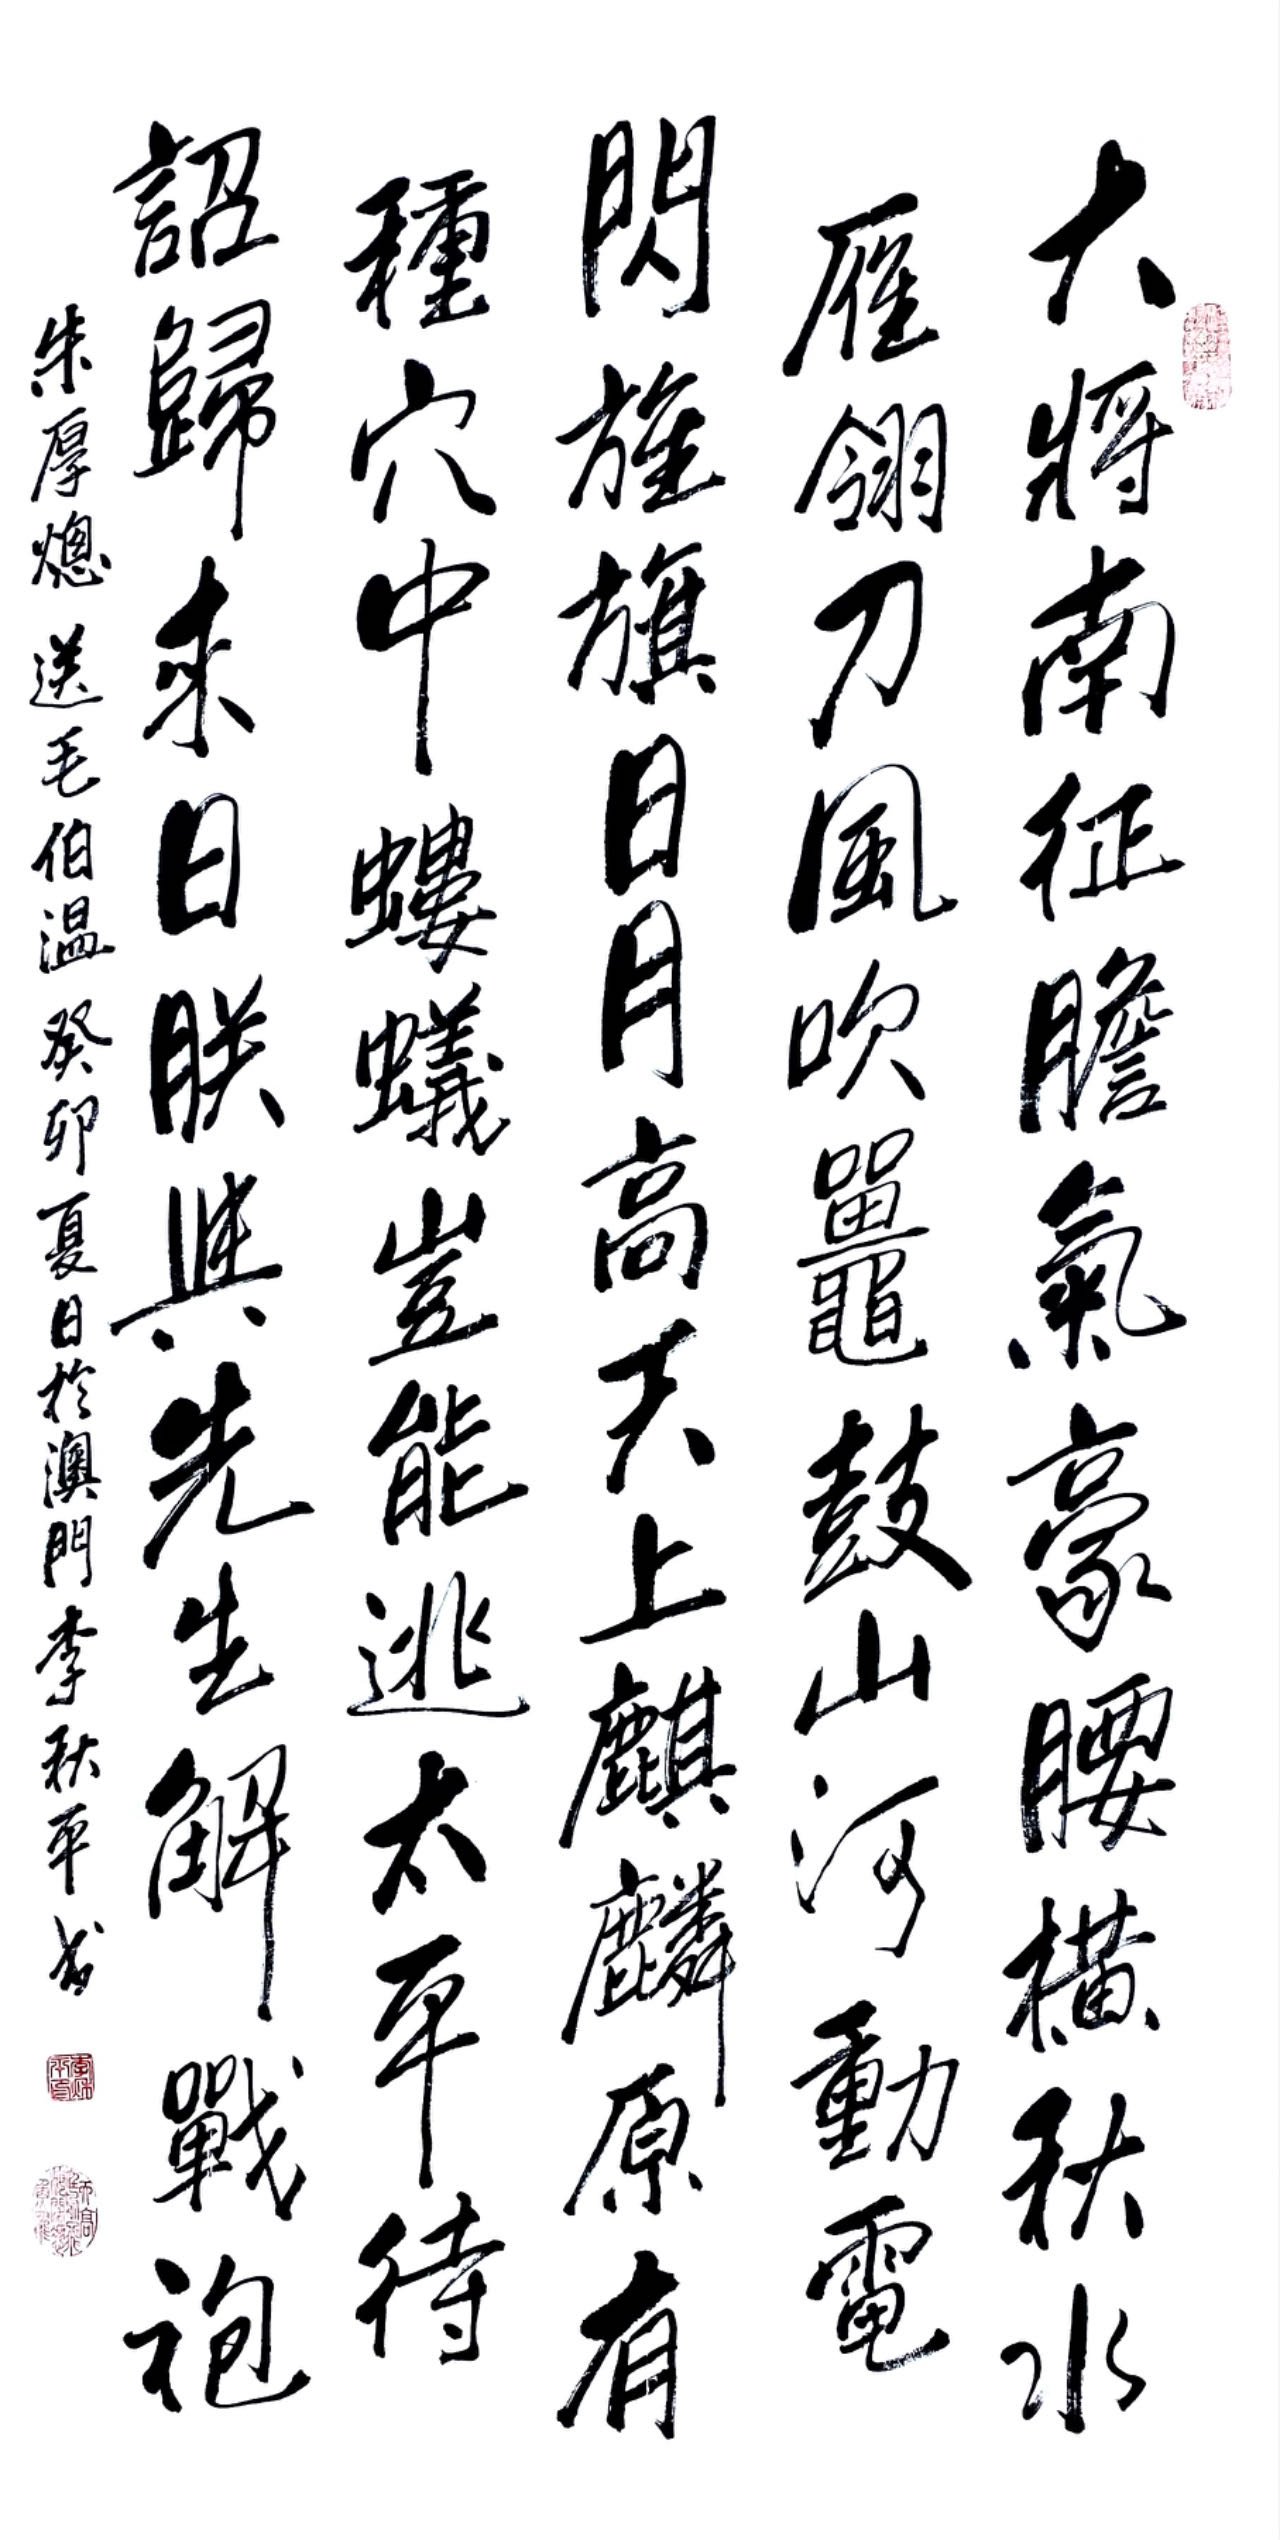 大將南征膽氣豪腰橫秋水
雁翎刀風吹鼉鼓山河動電
閃旌旗日月高天上麒麟原有
種穴中螻蟻豈能逃太平待
詔歸來日朕與先生解戰袍
朱厚熜 送毛伯溫 癸卯夏日於澳門李秋平书